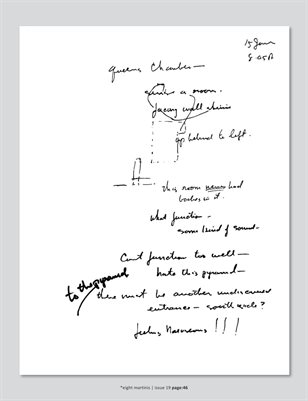 15 June
Queens Chamber —
a room.
facing wall
behind to left.
this room never had
bodies in it.
what function —
some kind of sound —
Can't function too well —
hate this pyramid —
to the pyramid
there must be another undiscovered
entrance — south side?
feeling Nauseous !!!
*eight martinis | issue 19 page:46